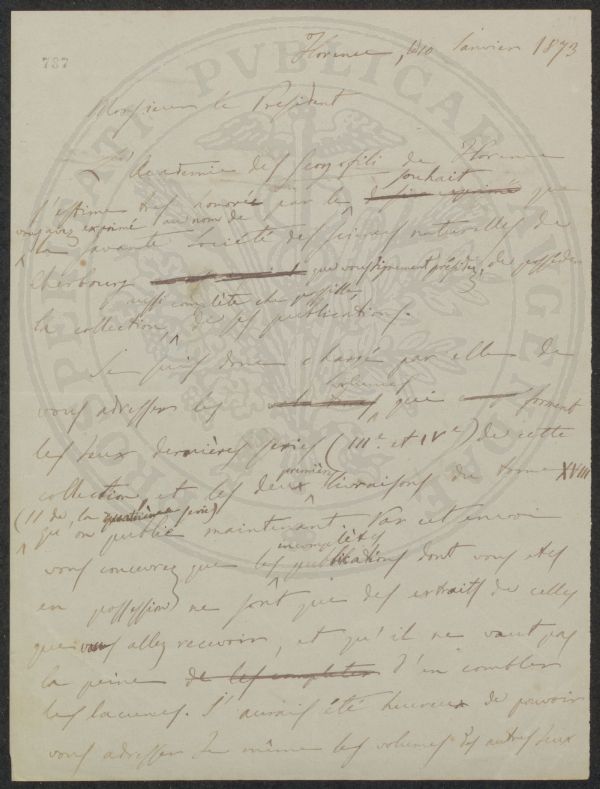 737
Florence, 10 Janvier 1873
Monsieur le Président
L'Académie des Georgofili de Florence
souhait
s'estime très honorée par le que
vous avez exprimé au nom de
la savante Société des sciences naturelles de
Cherbourg que vous si dignement présidez, de posséder
aussi complète que possible
la collection de ses publications.
Je suis donc chargé par elle de
volumes
vous adresser les qui forment
les deux dernières séries (IIIe et IVe) de cette
premières
collection et les deux livraisons du tome XVIII
(II de la quatrième série)
qu'on publie maintenant. Par cet envoi
incomplètes
vous concevrez que les publications dont vous êtes
en possession ne sont que des extraits de celles
que vous allez recevoir, et qu'il ne vaut pas
la peine de les compléter d'en combler
les lacunes. J'aurais été heureux de pouvoir
vous adresser de même les volumes des autres deux
PROSPERITATI PVBLICAE AVGENDAE